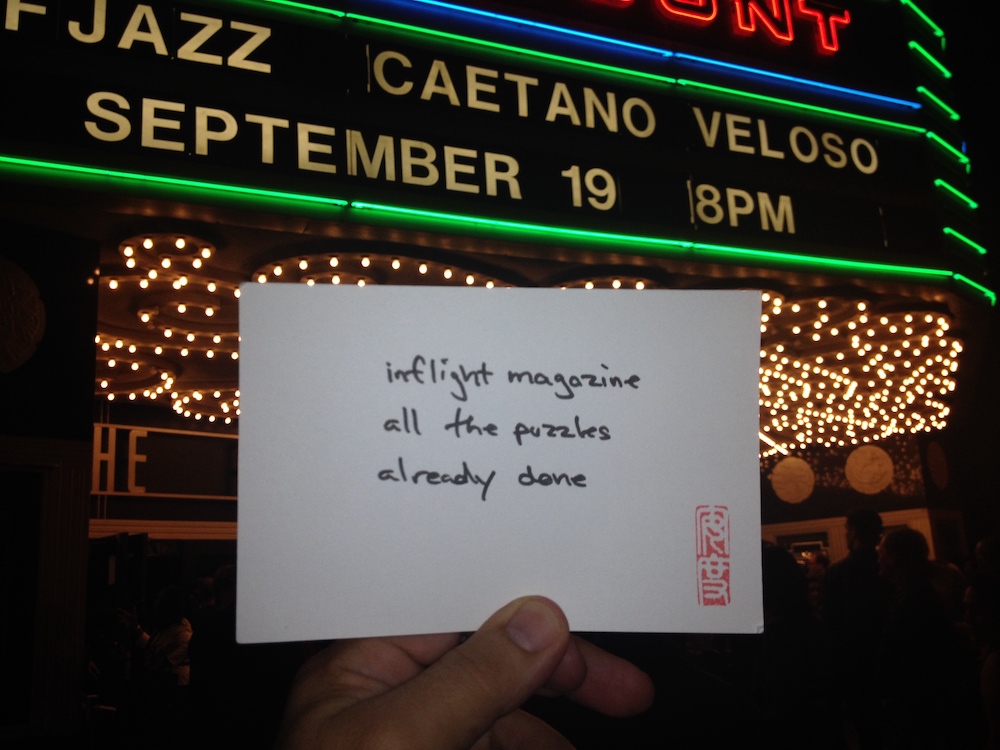 UNT
FJAZZ CAETANO VELOSO
SEPTEMBER 19 8PM
HE
inflight magazine
all the puzzles
already done